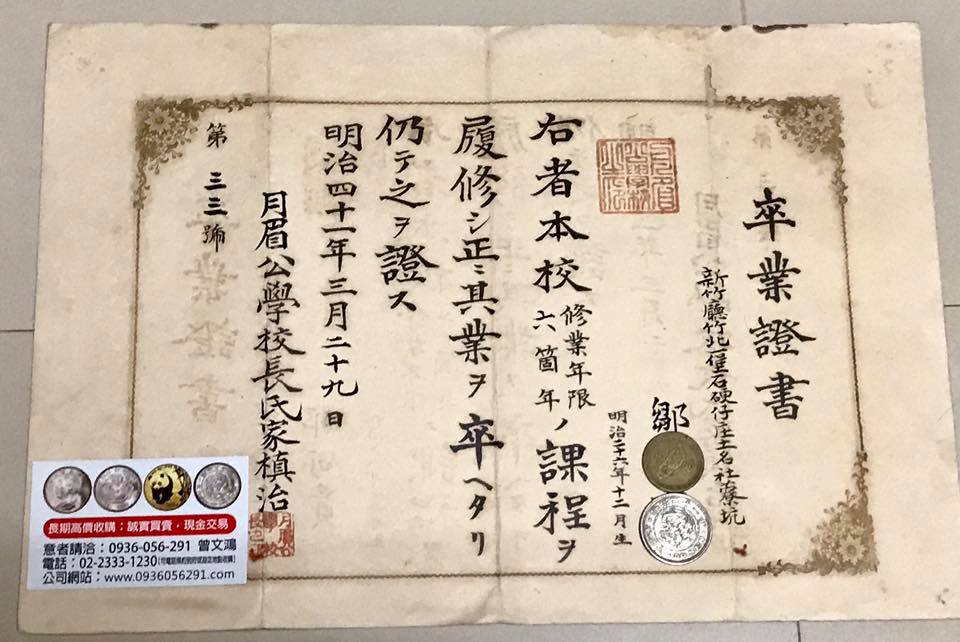 卒業證書
新竹廳竹北一堡石硬仔庄土名社藔坑
鄒
明治二十六年十二月生
右者本校修業年限六箇年ノ課程ヲ
履修シ正ニ其業ヲ卒ヘタリ
仍テ之ヲ證ス
明治四十一年三月二十九日
月眉公學校長氏家槙治
第三三號
長期高價收購；誠實買賣，現金交易
意者請洽：0936-056-291 曾文鴻
電話：02-2333-1230
公司網站：www.0936056291.com